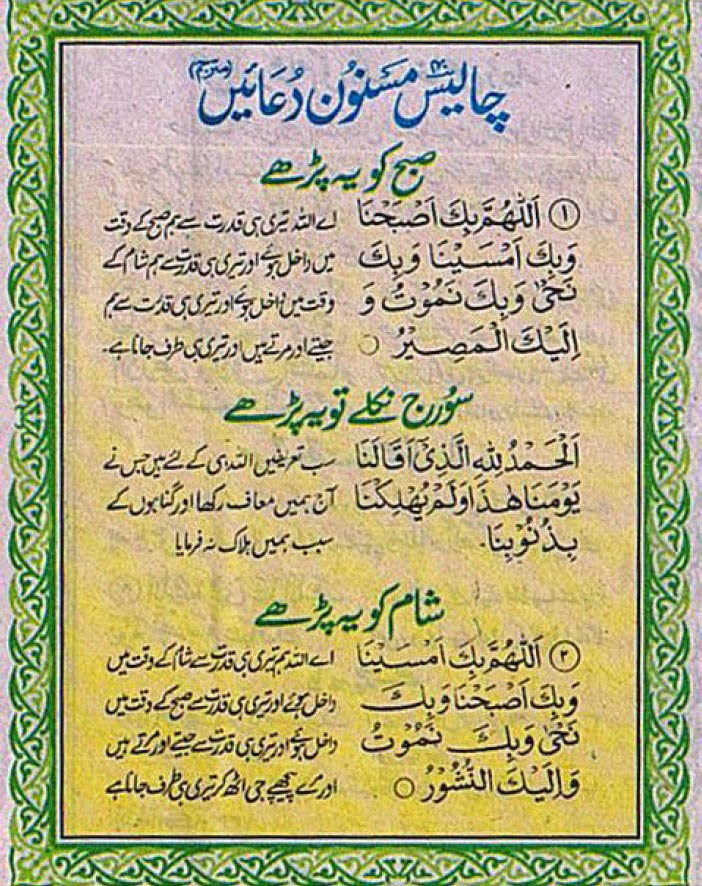 چالیسؔ مسنوُن دُعَائیں (مترجم)
۴۰
صبح کو یہ پڑھے
① اَللّٰهُمَّ بِكَ اَصْبَحْنَا اے اللہ تیری ہی قدرت سے ہم صبح کے وقت
وَبِكَ اَمْسَيْنَا وَبِكَ میں داخل ہوئے اور تیری ہی قدرت سے ہم شام کے
نَحْيٰى وَبِكَ نَمُوْتُ وَ وقت میں داخل ہوئے اور تیری ہی قدرت سے ہم
اِلَيْكَ الْمَصِيْرُ ○ جیتے اور مرتے ہیں اور تیری ہی طرف جانا ہے۔
سوُرج نکلے تو یہ پڑھے
اَلْحَمْدُ لِلّٰهِ الَّذِىْٓ اَقَالَنَا سب تعریفیں اللہ ہی کے لئے ہیں جس نے
يَوْمَنَا هٰذَا وَلَمْ يُهْلِكْنَا آج ہمیں معاف رکھا اور گناہوں کے
بِذُنُوْبِنَا۔ سبب ہمیں ہلاک نہ فرمایا
شام کو یہ پڑھے
② اَللّٰهُمَّ بِكَ اَمْسَيْنَا اے اللہ ہم تیری ہی قدرت سے شام کے وقت میں
وَبِكَ اَصْبَحْنَا وَبِكَ داخل ہوئے اور تیری ہی قدرت سے صبح کے وقت میں
نَحْيٰى وَبِكَ نَمُوْتُ داخل ہوئے اور تیری ہی قدرت سے جیتے اور مرتے ہیں
وَاِلَيْكَ النُّشُوْرُ ○ اور مرے پیچھے جی اٹھ کر تیری ہی طرف جانا ہے